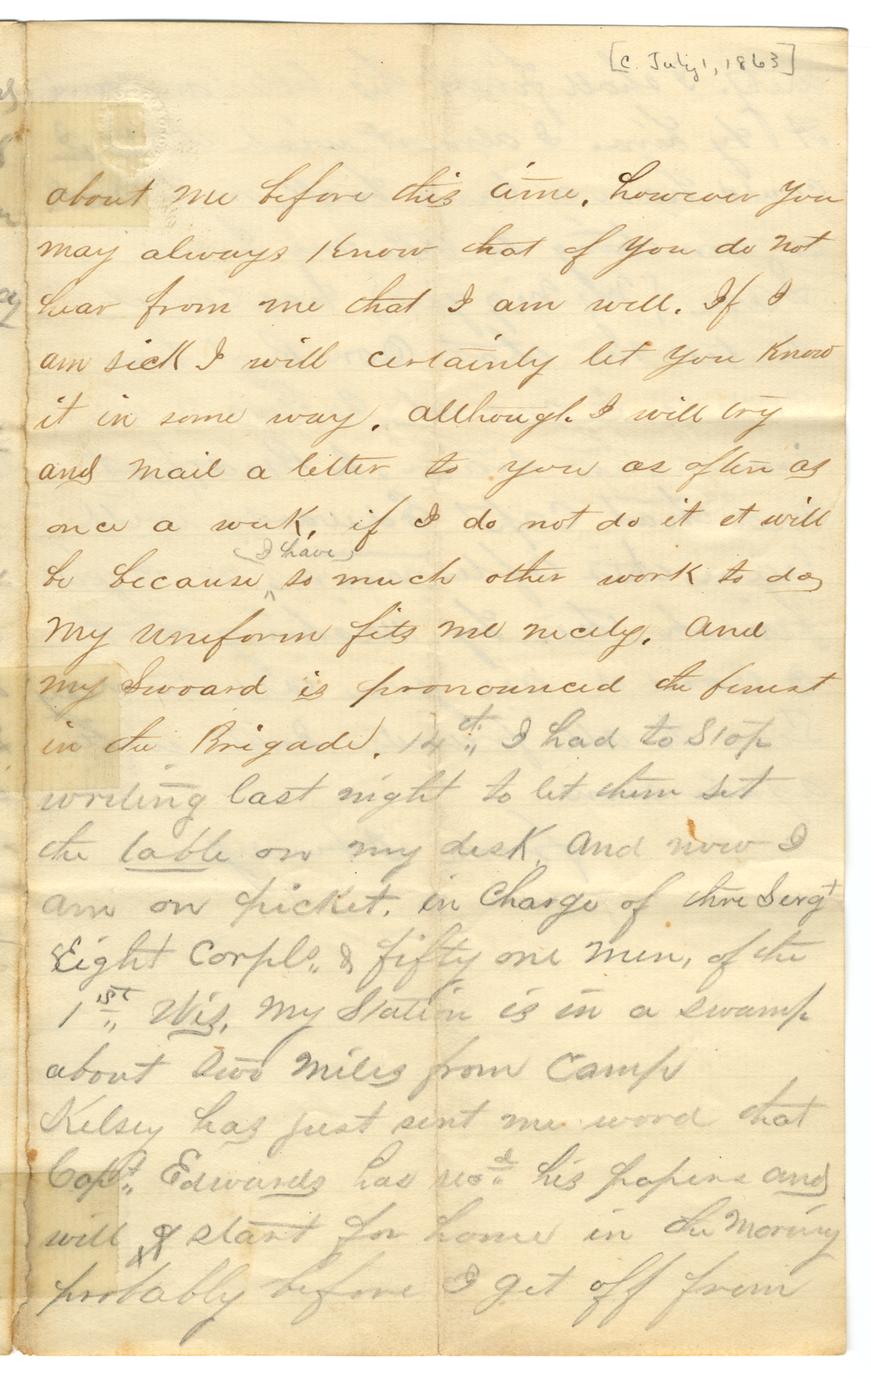 [c. July 1, 1863]
about me before this time. however you
may always Know that if you do not
hear from me that I am well. If I
am sick I will certainly let you Know
it in some way. allthough I will try
and mail a letter to you as often as
once a week, if I do not do it it will
be because I have so much other work to do,
My uneform fits me nicely. and
my Swoard is pronounced the finest
in the Brigade. 14th I had to Stop
writing last night to let them set
the table on my desk. And now I
am on picket. in Charge of three Sergt
Eight Corpls. & fifty one men, of the
1st Wis. My Station is in a swamp
about two miles from Camp
Kelsey has just sent me word that
Capt. Edwards has recd his papers and
will start for home in the Morning
probably before I get off from